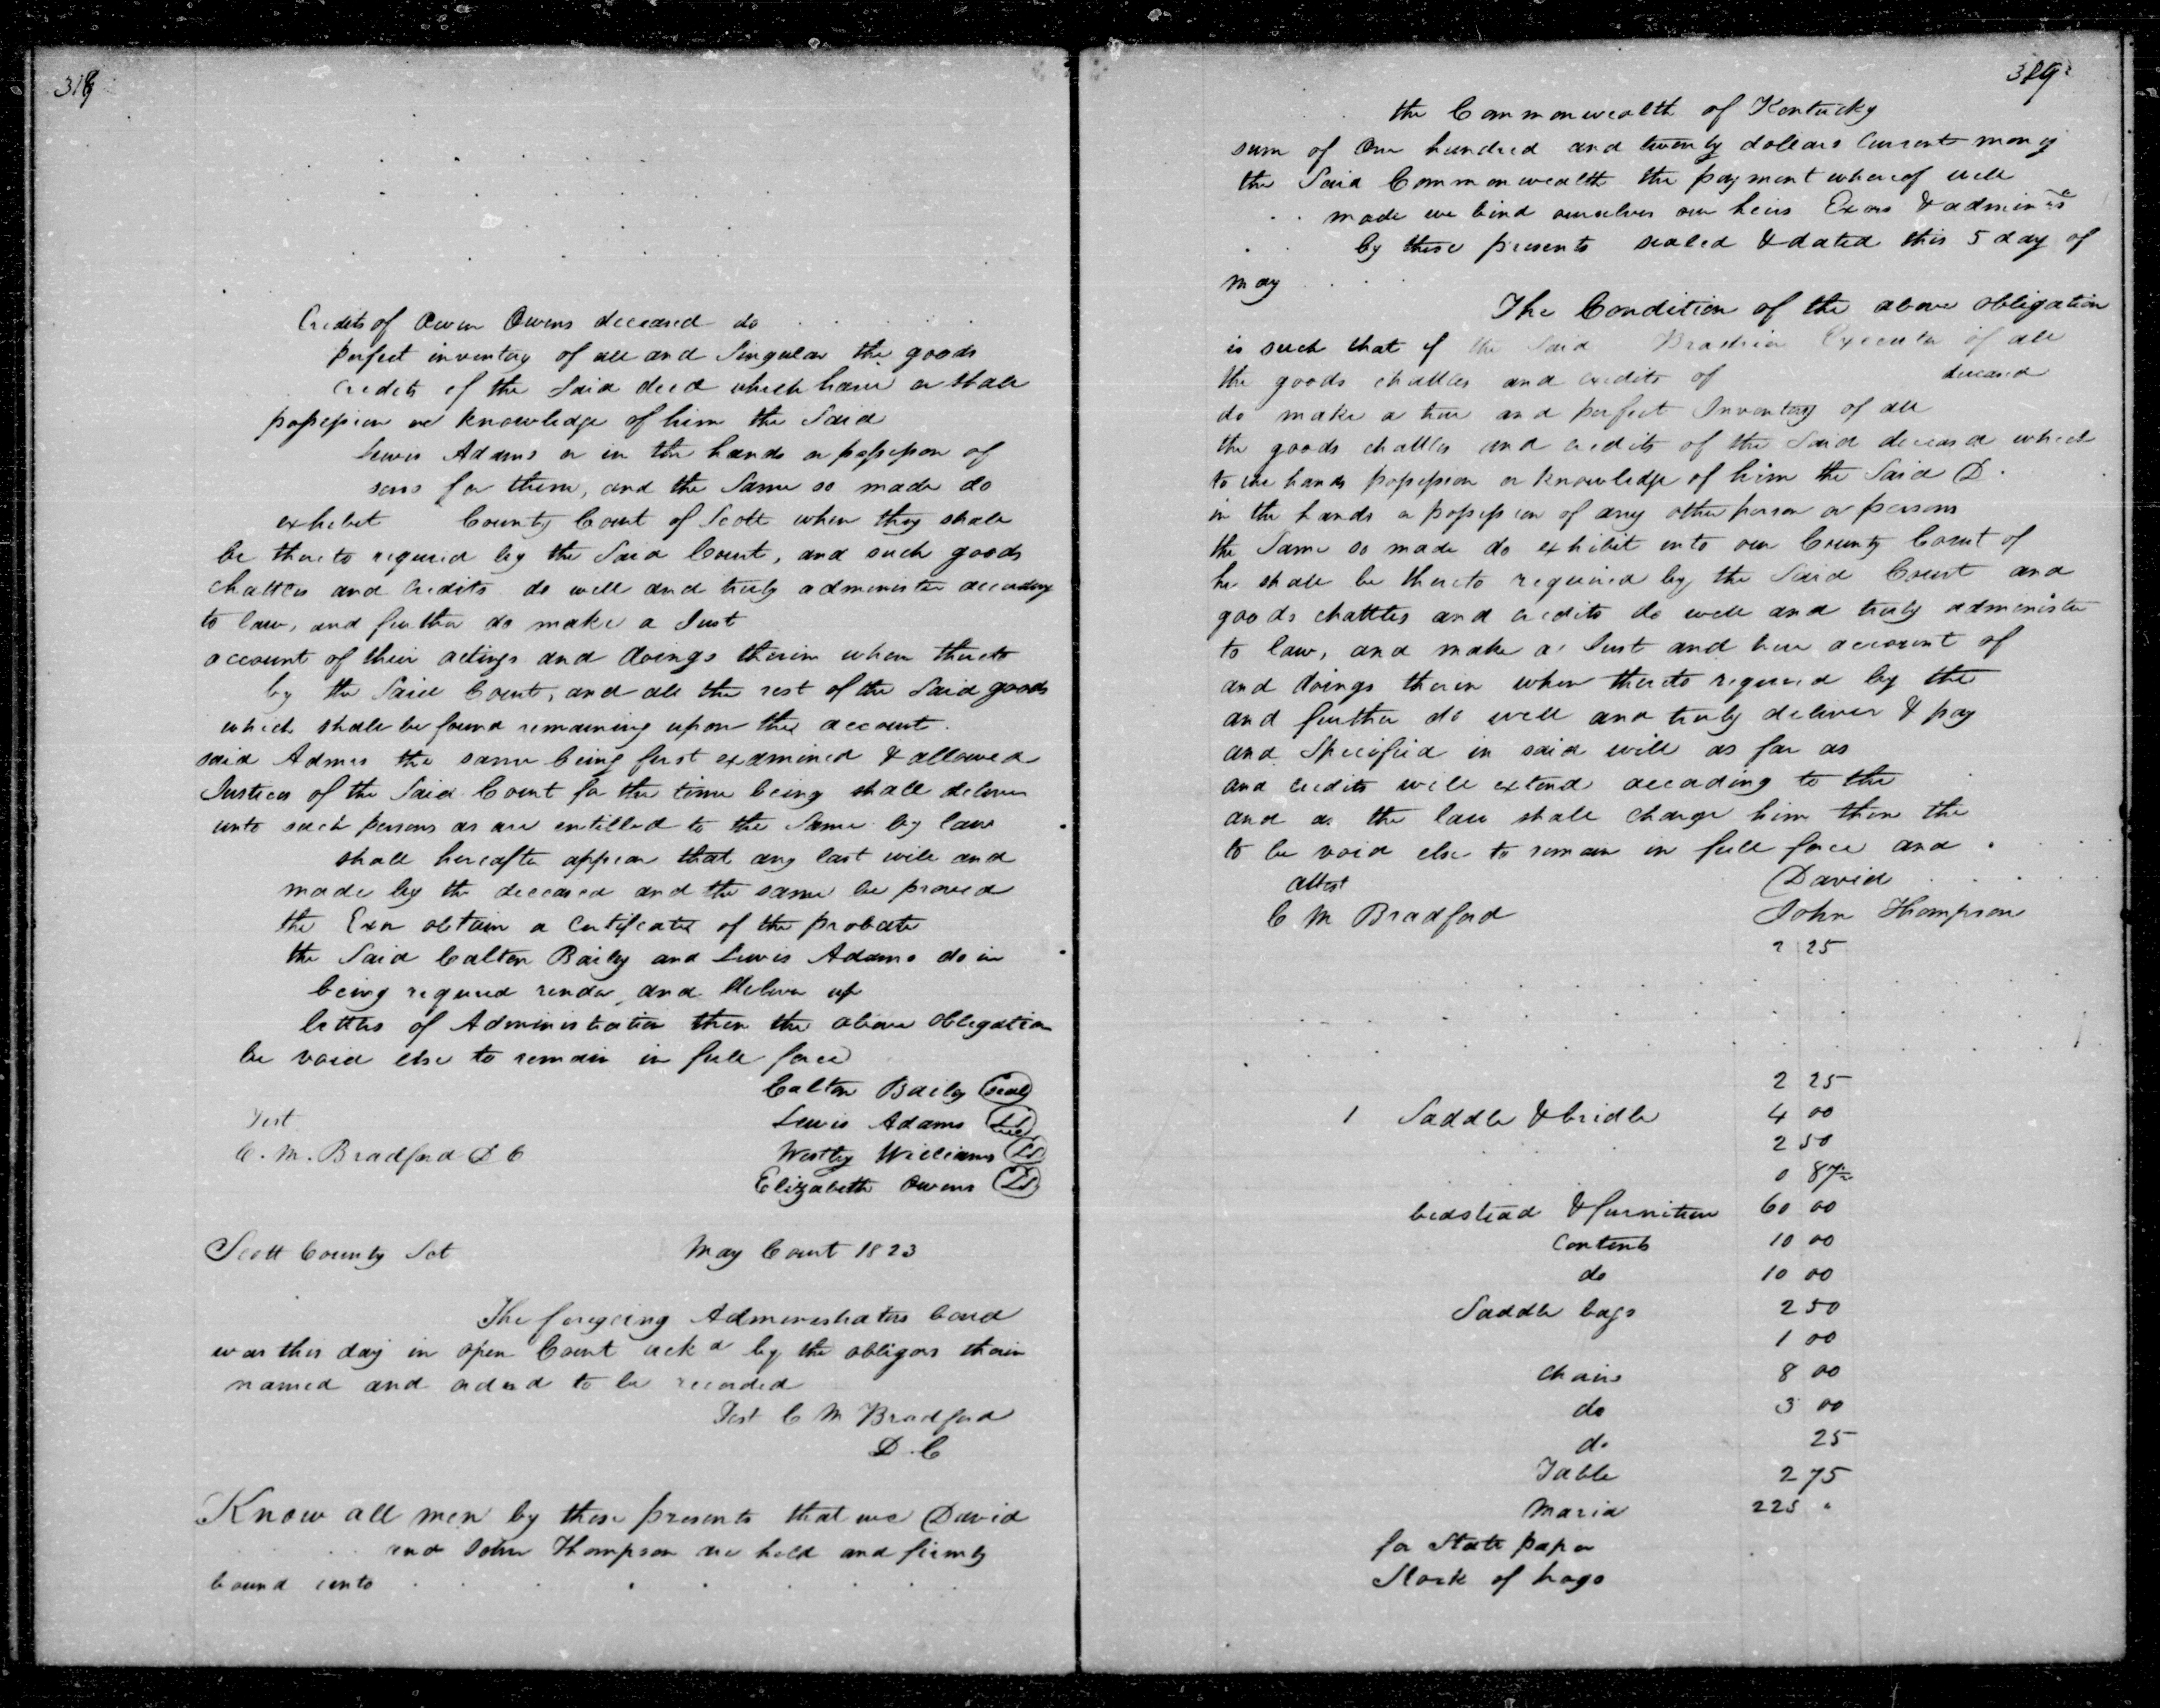 318
Credits of Owen Owens deceased do
perfect inventory of all and Singular the goods
credits of the Said decd which have or shall
possession or knowledge of him the Said
Lewis Adams or in the hands or possession of
sons for them, and the Same so made do
exhibit County Court of Scott when they shall
be thereto required by the Said Court, and such goods
chattles and Credits do well and truly administer according
to law, and further do make a Just
account of their actings and doings therein when thereto
by the Said Court, and all the rest of the Said goods
which shall be found remaining upon the account
said Admrs the same being first examined & allowed
Justices of the Said Court for the time being shall deliver
unto such persons as are entitled to the Same by law
shall hereafter appear that any last will and
made by the deceased and the same be proved
the Exr obtain a Certificate of the probate
the Said Calton Baily and Lewis Adams do in
being required render and deliver up
letters of Administration then the above obligation
be void else to remain in full force
Calton Baily Seal
Test Lewis Adams
C. M. Bradford D C Westly Williams LS
Elizabeth Owens LS
Scott County Sct May Court 1823
The foregoing Administrators bond
was this day in open Court ackd by the obligors therin
named and orderd to be recorded
Test C M Bradford
D. C
Know all men by these presents that we David
and John Thompson are held and firmly
bound unto
319
the Commonwealth of Kentucky
sum of One hundred and twenty dollars Current money
the Said Commonwealth the payment whereof well
made we bind ourselves our heirs Exors & adminrs
by these presents sealed & dated this 5 day of
may
The Condition of the above obligation
is such that if the Said Executor of all
the goods chattles and credits of deceased
do make a true and perfect Inventory of all
the goods chattles and credits of the Said deceasd which
to the hands possession or knowledge of him the Said D
in the hands or possession of any other person or persons
the Same so made do exhibit into our County Court of
he shall be thereto required by the Said Court and
goods chattles and credits do well and truly administer
to law, and make a Just and true account of
and doings therein when thereto required by the
and further do well and truly deliver & pay
and Specified in said will as far as
and credits will extend according to the
and as the law shall charge him then the
to be void else to remain in full force and
attest David
C M Bradford John Thompson
2 25
2 25
1 Saddle & bridle 4 00
2 50
0 87½
bedstead & furniture 60 00
Contents 10 00
do 10 00
Saddle bags 2 50
1 00
Chairs 8 00
do 3 00
do 25
Table 2 75
Maria 225 "
for State paper
Stock of hogs